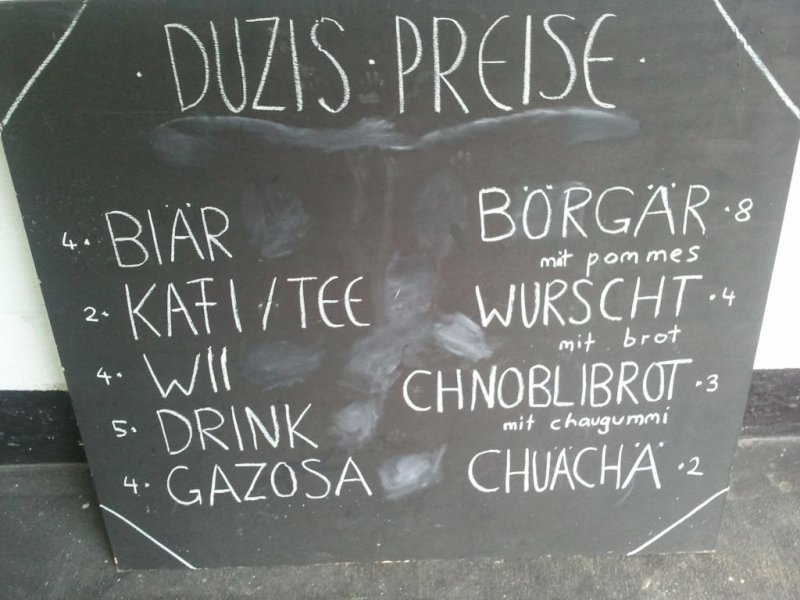 · DUZIS · PREISE ·
4· BIÄR
2· KAFI / TEE
4· WII
5· DRINK
4· GAZOSA
BÖRGÄR ·8
mit pommes
WURSCHT ·4
mit brot
CHNOBLIBROT ·3
mit chaugummi
CHUÄCHÄ ·2